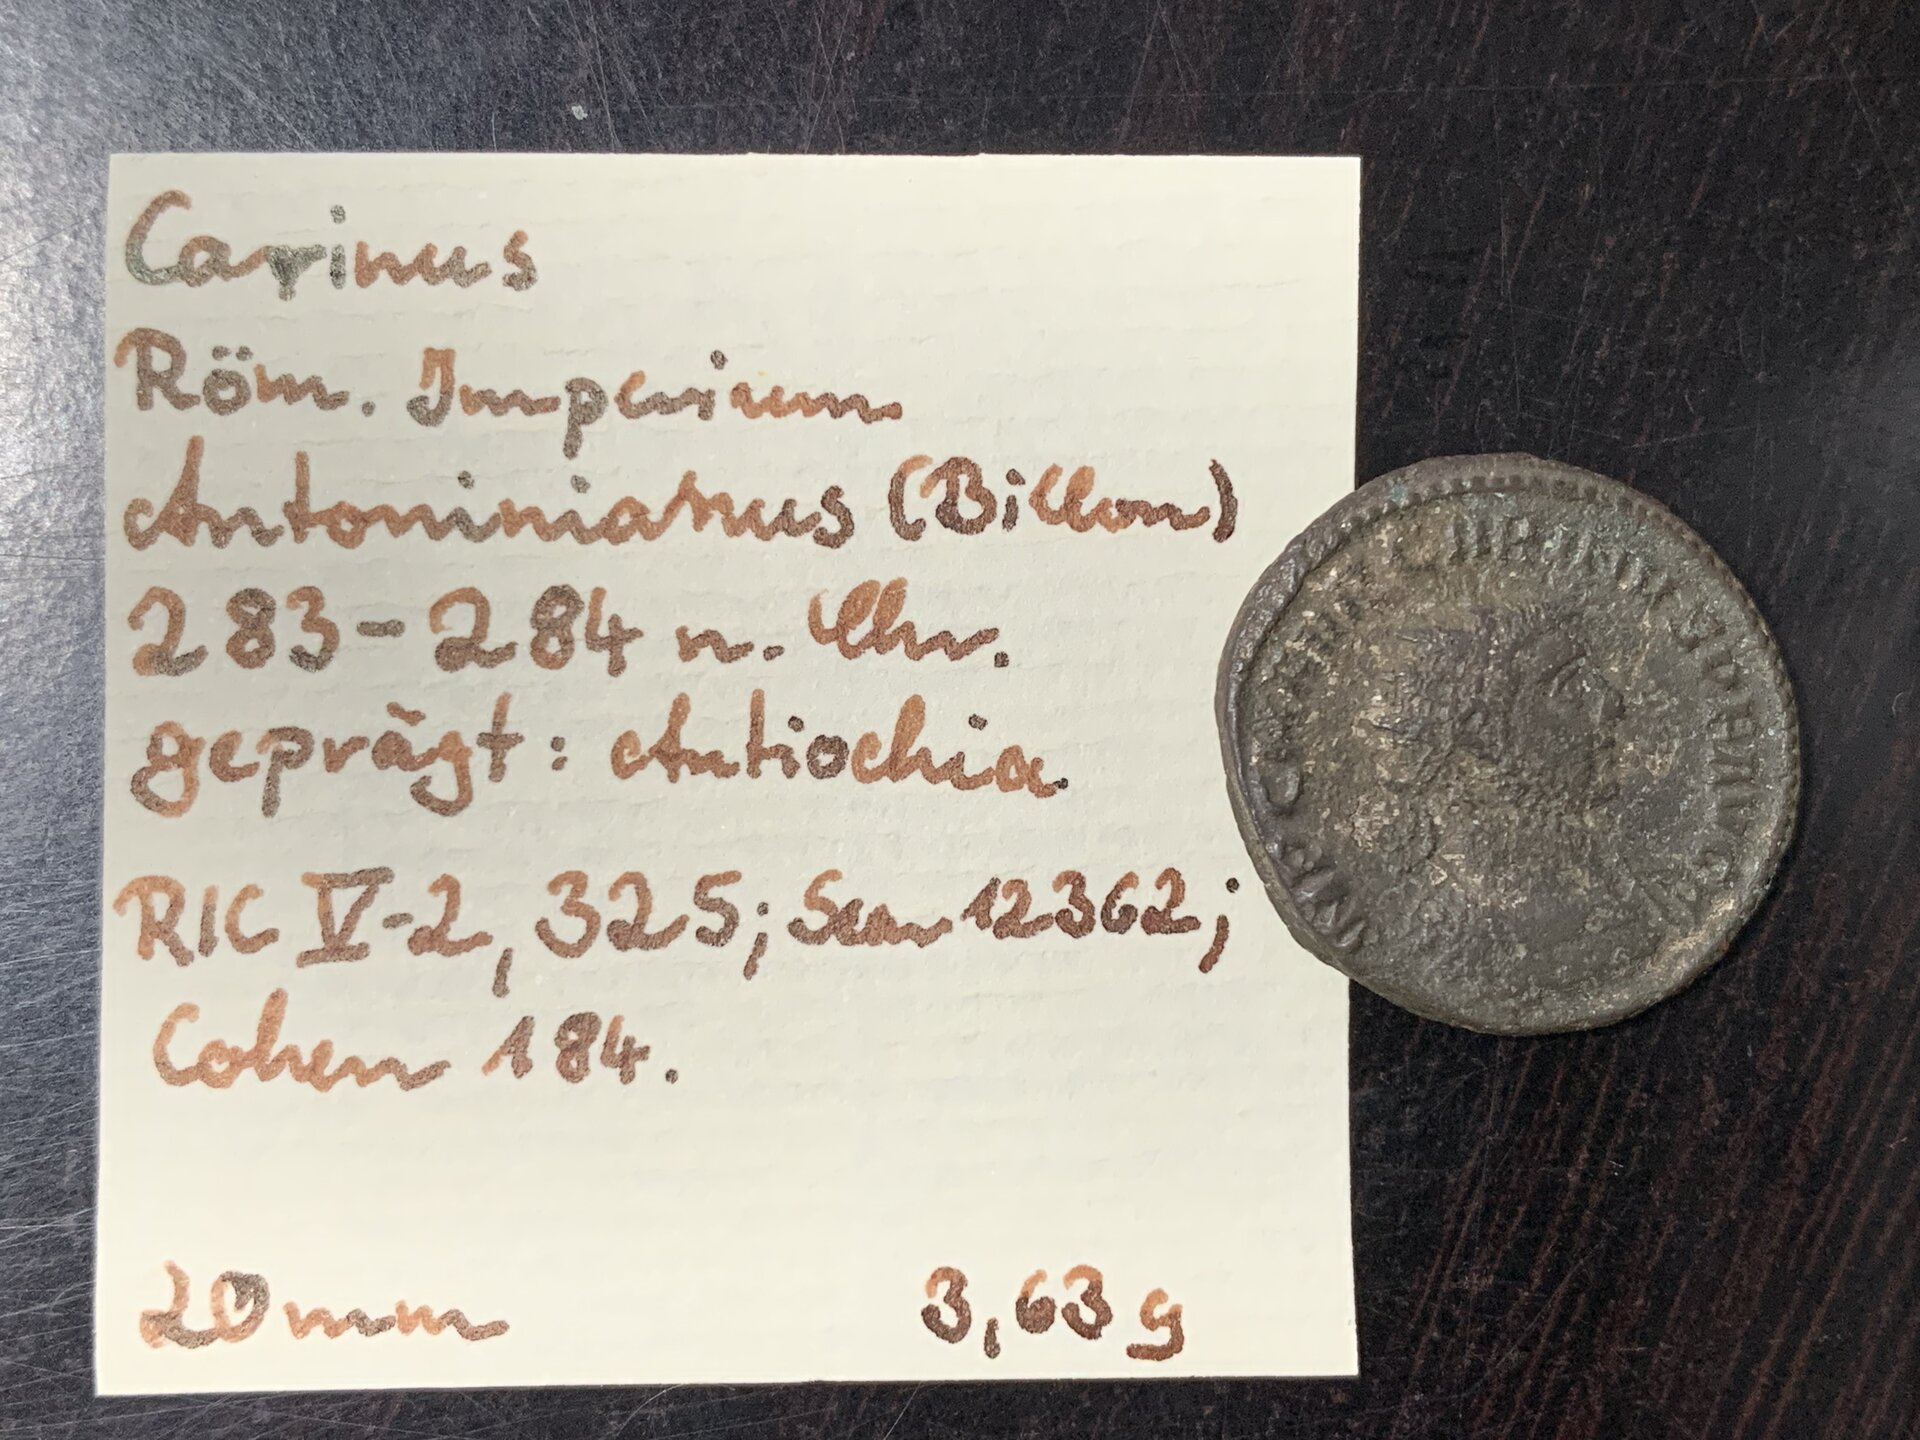 Carinus
Röm. Imperium
Antoninianus (Billon)
283-284 n. Chr.
geprägt: Antiochia
RIC V-2, 325; Sear 12362;
Cohen 184.
20mm 3,63 g
IMP C M AVR CARINVS NOB AVG